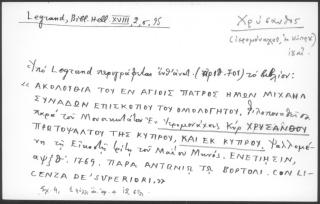 Legrand, Bibl. Hell. XVIII, 2, σ. 95
Χρύσανθος
(ἱερομόναχος, ἐκ Κύπρου)
Ὑπὸ Legrand περιγράφεται (ἀριθ. 701) τὸ βιβλίον:
« ΑΚΟΛΟΥΘΙΑ ΤΟΥ ΕΝ ΑΓΙΟΙΣ ΠΑΤΡΟΣ ΗΜΩΝ ΜΙΧΑΗΛ
ΣΥΝΑΔΩΝ ΕΠΙΣΚΟΠΟΥ ΤΟΥ ΟΜΟΛΟΓΗΤΟΥ, Φιλοπονηθεῖσα
παρὰ τοῦ Ἐν Ἱερομονάχοις Κὺρ ΧΡΥΣΑΝΘΟΥ
ΠΡΩΤΟΨΑΛΤΟΥ ΤΗΣ ΚΥΠΡΟΥ, ΚΑΙ ΕΚ ΚΥΠΡΟΥ, Ψαλλομέ-
νη τῇ Εἰκοστῇ τρίτῃ τοῦ Μαΐου Μηνός. ΕΝΕΤΙΗΣΙΝ,
αψξθ'. 1769. ΠΑΡΑ ΑΝΤΩΝΙΩ ΤΩ ΒΟΡΤΟΛΙ. CON LI-
CENZA DE' SUPERIORI. »